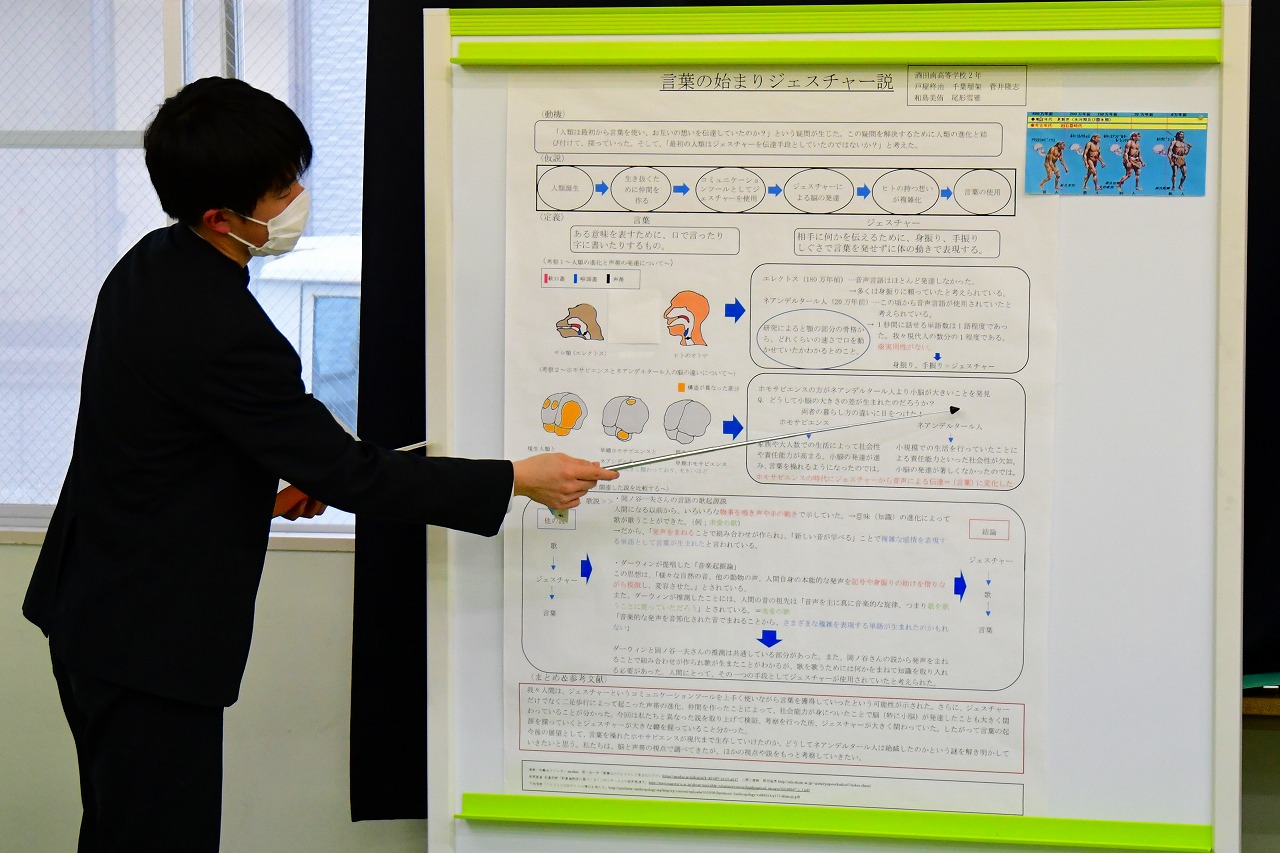 言葉の始まりジェスチャー説
酒田南高等学校2年
戸屋柊治　千葉瑠架　菅井隆志
和島美侑　尾形雪雅
(動機)
「人類は最初から言葉を使い、お互いの想いを伝達していたのか？」という疑問が生じた。この疑問を解決するために人類の進化と結
び付けて、探っていった。そして、「最初の人類はジェスチャーを伝達手段としていたのではないか？」と考えた。
(仮説)
人類誕生
生き抜くた
めに仲間を
作る
コミュニケーショ
ンツールとしてジ
ェスチャーを使用
ジェスチャーに
よる脳の発達
ヒトの持つ想い
が複雑化
言葉の使用
(定義)
言葉
ある意味を表すために、口で言ったり
字に書いたりするもの。
ジェスチャー
相手に何かを伝えるために、身振り、手振り
しぐさで言葉を発せずに体の動きで表現する。
(考察1～人類の進化と声帯の発達について～)
声帯
ヒトのオトナ
エレクトス（180万年前）―音声言語はほとんど発達しなかった。
→多くは身振りに頼っていたと考えられている。
ネアンデルタール人（20万年前）―この頃から音声言語が使用されていたと
考えられている。
→1秒間に話せる単語数は1語程度であっ
た。我々現代人の数分の1程度である。
研究によると顎の部分の骨格か
ら、どれくらいの速さで口を動
かせていたかわかるとのこと。
身振り、手振り＝ジェスチャー
(考察2～ホモサピエンスとネアンデルタール人の脳の違いについて～)
構造が異なった部分
現生人類と
早期ホモサピエンスと
早期ホモサピエンス
ホモサピエンスの方がネアンデルタール人より小脳が大きいことを発見
Q. どうして小脳の大きさの差が生まれたのだろうか？
両者の暮らし方の違いに目をつけた！
ホモサピエンス
ネアンデルタール人
家族や大人数での生活によって社会性
や責任能力が高まる。小脳の発達が進
み、言葉を操れるようになったのでは。
小規模での生活を行っていたことに
よる責任能力といった社会性が欠如。
小脳の発達が著しくなかったのでは。
ホモサピエンスの時代にジェスチャーから音声による伝達＝（言葉）に変化した
関連した説を比較する～)
歌説＞＞
・岡ノ谷一夫さんの言語の歌起源説
人間になる以前から、いろいろな物事を鳴き声や手の動きで示していた。→意味（知識）の進化によって
歌が歌うことができた。（例：求愛の歌）
→だから、「発声をまねることで組み合わせが作られ」、「新しい音が学べる」ことで複雑な感情を表現す
る単語として言葉が生まれたと言われている。
歌
ジェスチャー
言葉
・ダーウィンが提唱した「音楽起源論」
この思想は、「様々な自然の音、他の動物の声、人間自身の本能的な発声を記号や身振りの助けを借りな
がら模倣し、変容させた。」とされている。
また、ダーウィンが推測したことには、人間の音の祖先は「音声を主に真に音楽的な旋律、つまり歌を歌
うことに使っていただろう」とされている。＝求愛の歌
「音楽的な発声を音節化された音でまねることから、さまざまな複雑を表現する単語が生まれたのかもれ
ない」
ダーウィンと岡ノ谷一夫さんの推測は共通している部分があった。また、岡ノ谷さんの説から発声をまね
ることで組み合わせが作られ歌が生まれたことがわかるが、歌を歌うためには何かをまねて知識を取り入れ
る必要があった。人間にとって、その一つの手段としてジェスチャーが使用されていたと考えられた。
結論
ジェスチャー
歌
言葉
(まとめ&参考文献)
我々人間は、ジェスチャーというコミュニケーションツールを上手く使いながら言葉を獲得していったという可能性が示された。さらに、ジェスチャー
だけでなく二足歩行によって起こった声帯の進化、仲間を作ったことによって、社会能力が身についたことで脳（特に小脳）が発達したことも大きく関
わっていることが分かった。今回は私たちと異なった説を取り上げて検証、考察を行った所、ジェスチャーが大きく関わっていた。したがって言葉の起
源を探っていくとジェスチャーが大きな鍵を握っていること分かった。
今後の展望として、言葉を操れたホモサピエンスが現代まで生存していけたのか、どうしてネアンデルタール人は絶滅したのかという謎を解き明かして
いきたいと思う。私たちは、脳と声帯の視点で調べてきたが、ほかの視点や説をもっと考察していきたい。